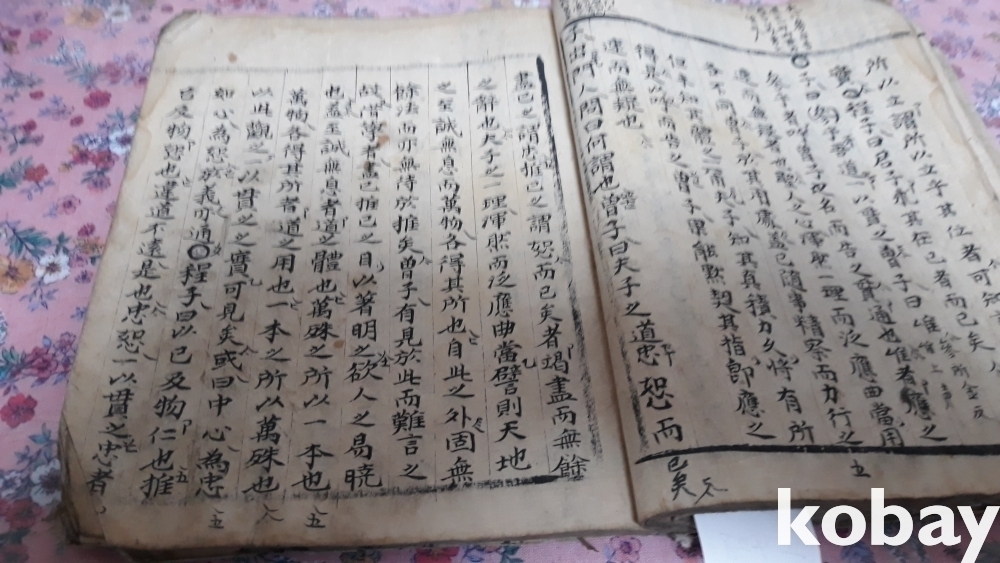 所以立謂所以立乎其位者可知
實○程子曰君子求其在己者而已矣
○子曰參乎吾道一以貫之曾子曰唯
參所金反
唯上聲
參乎者呼曾子之名而告之貫通也唯者應之
速而無疑者也聖人之心渾然一理而泛應曲當用
各不同曾子於其用處蓋已隨事精察而力行之
但未知其體之一爾夫子知其真積力久將有所
得是以呼而告之曾子果能默契其指卽應之
速而無疑也
子出門人問曰何謂也曾子曰夫子之道忠恕而
已矣
盡己之謂忠推己之謂恕而已矣者竭盡而無餘
之辭也夫子之一理渾然而泛應曲當譬則天地
之至誠無息而萬物各得其所也自此之外固無
餘法而亦無待於推矣曾子有見於此而難言之
故借學者盡己推己之目以著明之欲人之易曉
也盖至誠無息者道之體也萬殊之所以一本也
萬物各得其所者道之用也一本之所以萬殊也
以此觀之一以貫之之實可見矣或曰中心為忠
如心為恕於義亦通○程子曰以己及物仁也推
己及物恕也違道不遠是也忠恕一以貫之忠者
kobay